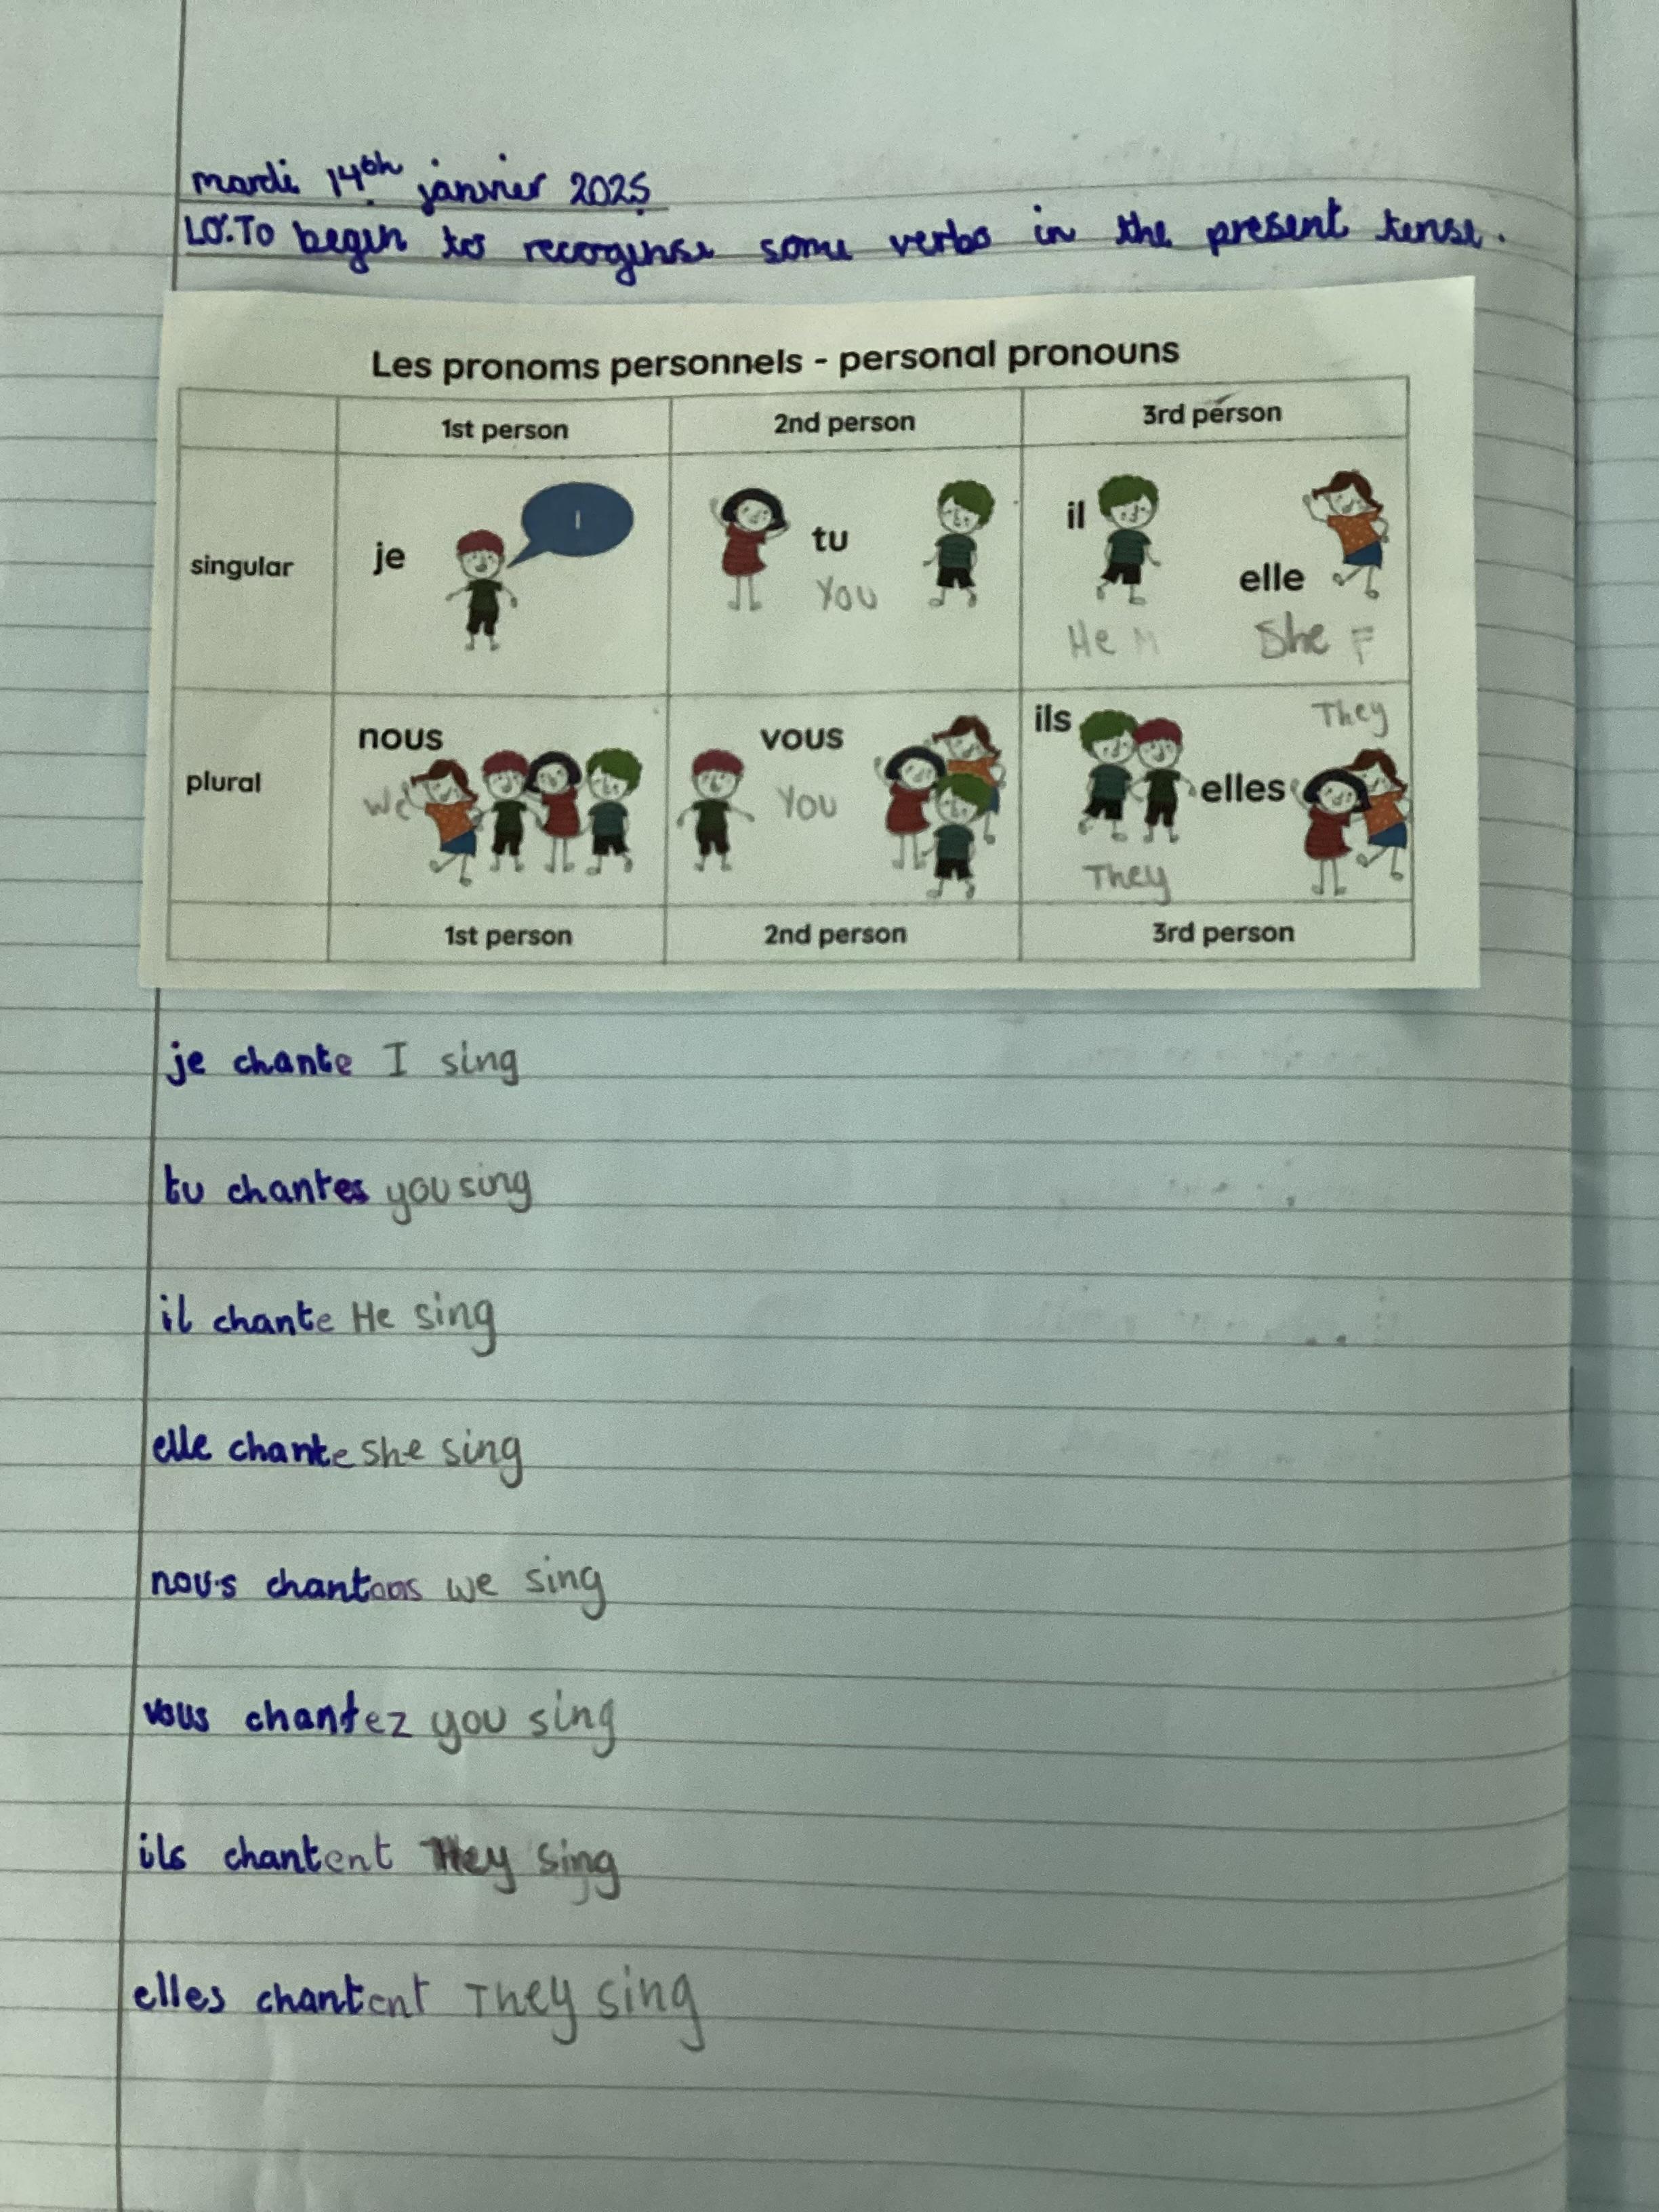 mardi 14th janvier 2025
LO: To begin to recognise some verbs in the present tense.
Les pronoms personnels - personal pronouns
1st person 2nd person 3rd person
singular je I tu You il He M elle She F
plural nous We vous You ils They elles They
1st person 2nd person 3rd person
je chante I sing
tu chantes you sing
il chante He sing
elle chante she sing
nous chantons we sing
vous chantez you sing
ils chantent They sing
elles chantent They sing